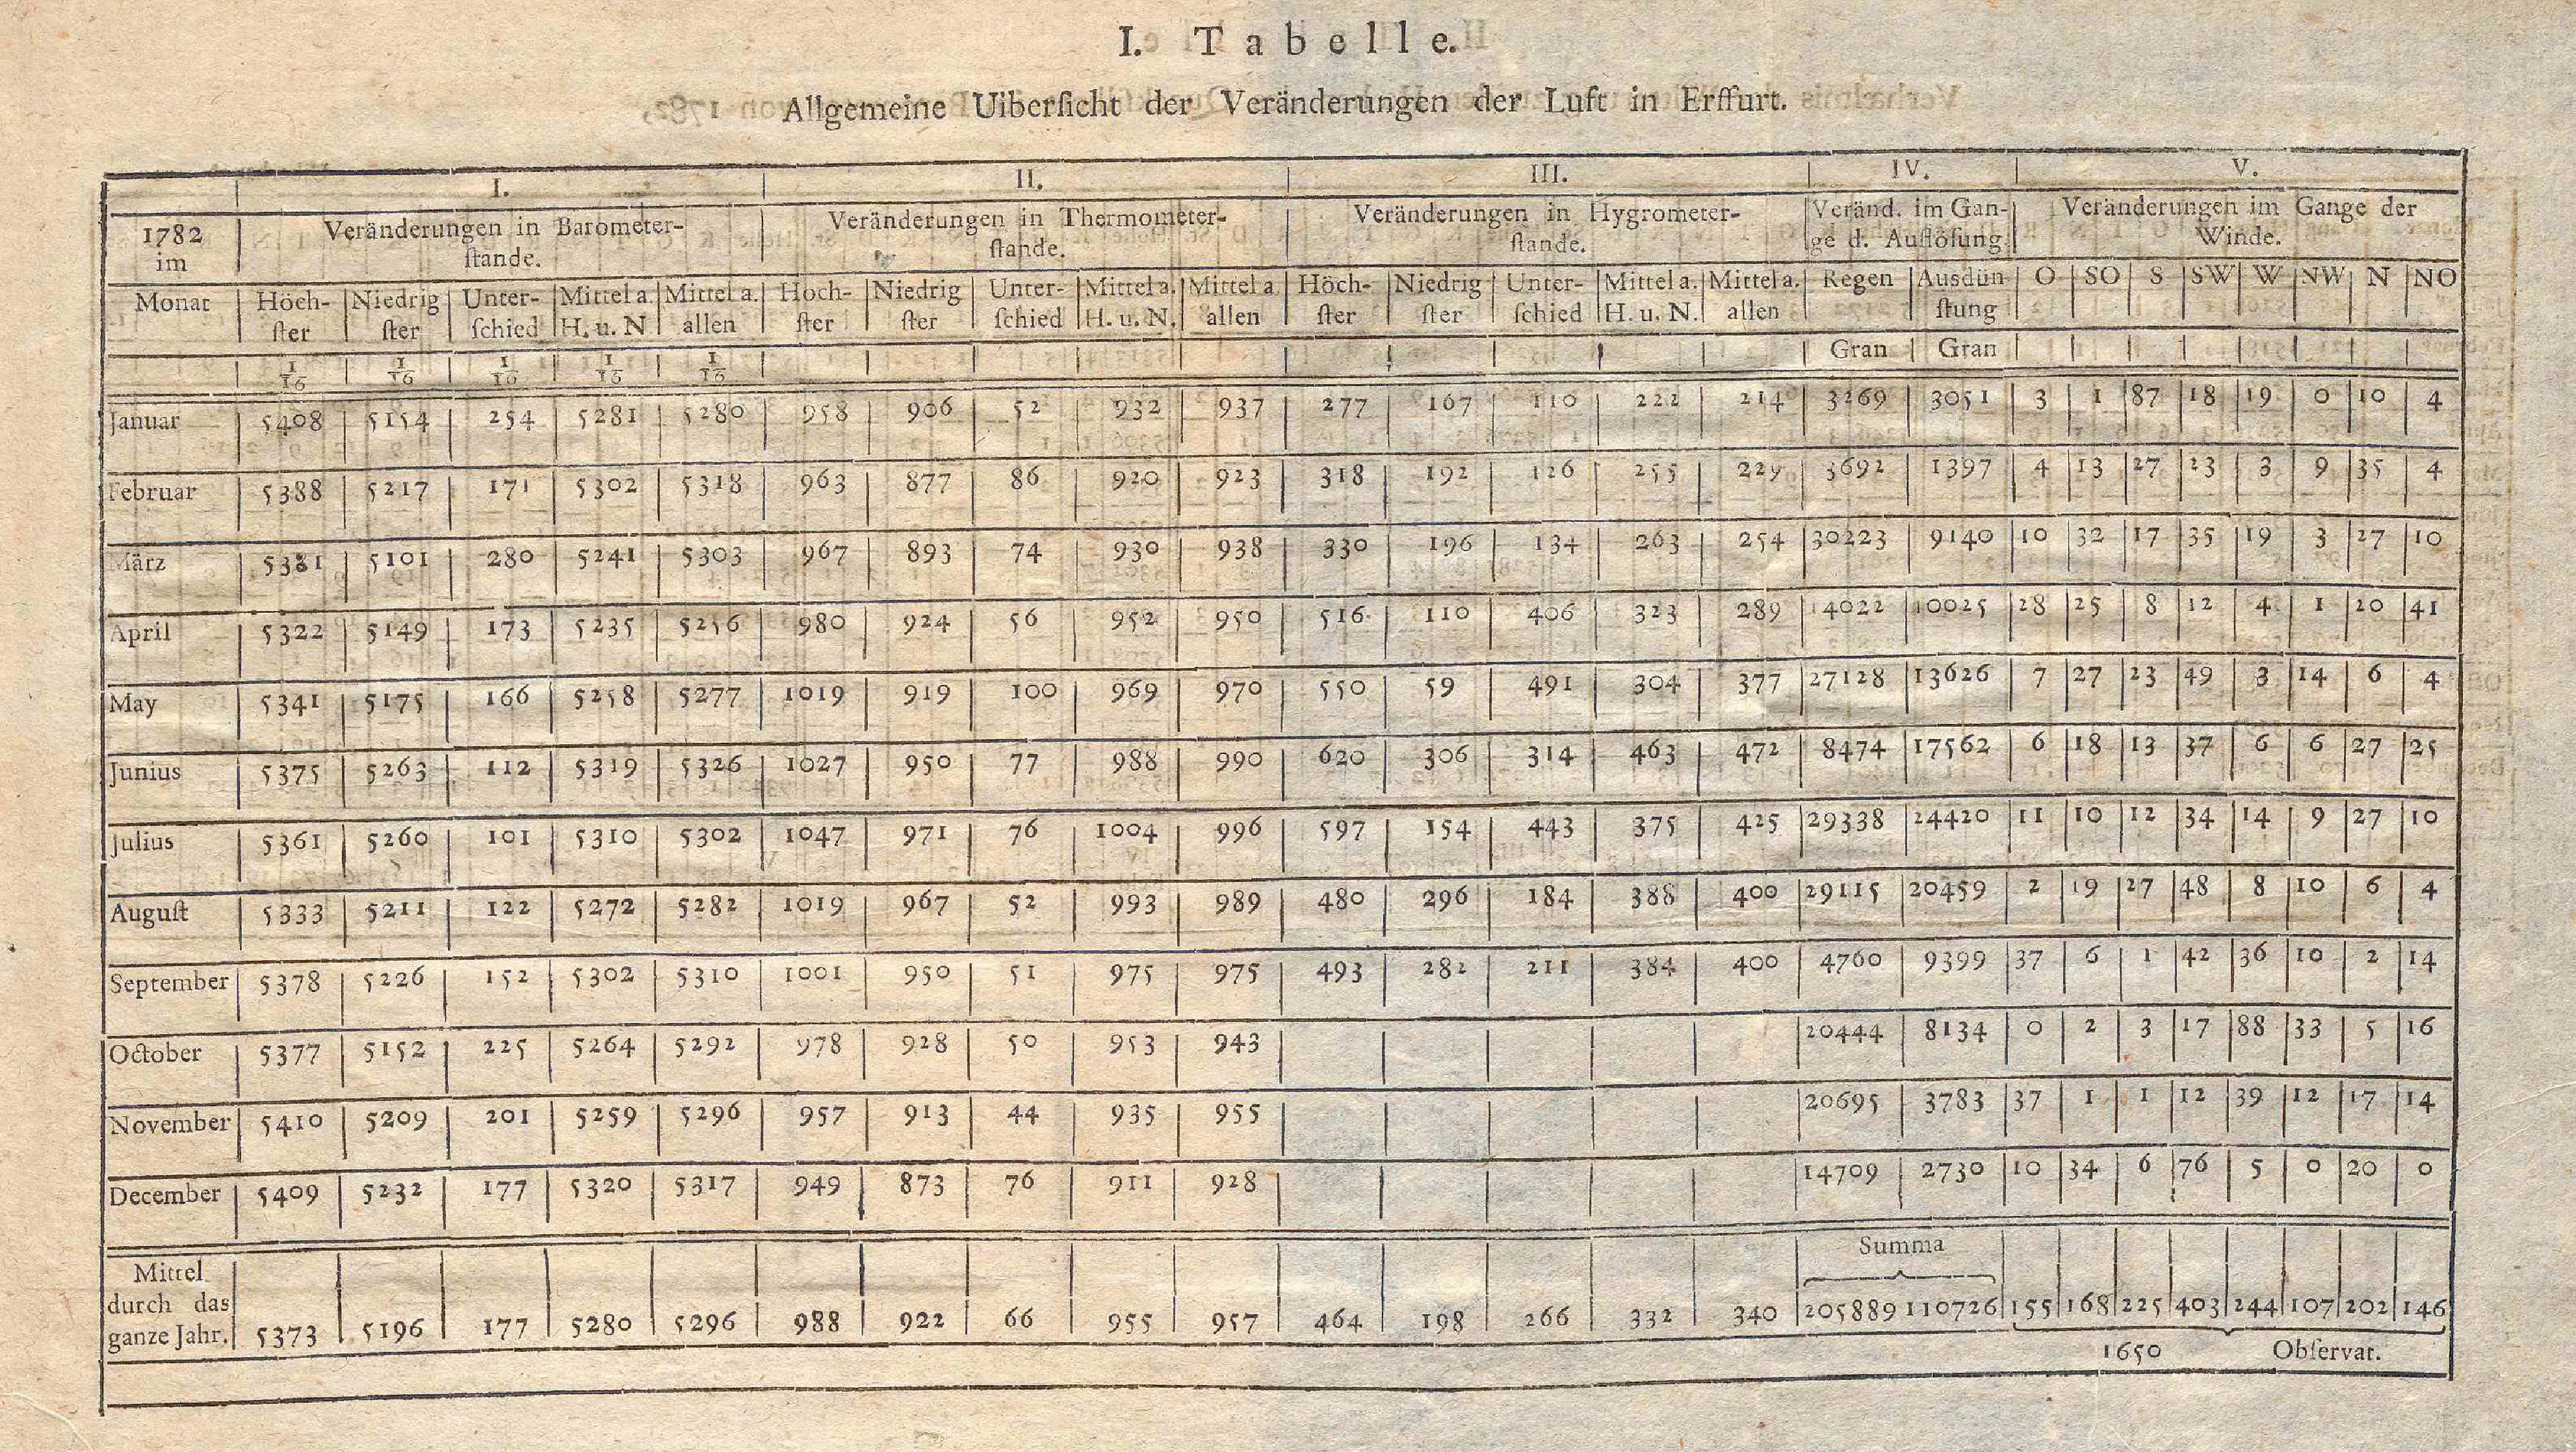 I. Tabelle.
Allgemeine Uiberſicht der Veränderungen der Luft in Erffurt.
I. II. III. IV. V.
1782 im Monat
Veränderungen in Barometer-ſtande.
Veränderungen in Thermometer-ſtande.
Veränderungen in Hygrometer-ſtande.
Veränd. im Gan-ge d. Auflöſung
Veränderungen im Gange der Winde.
Höch-ſter Niedrig ſter Unter-ſchied Mittel a. H. u. N Mittel a. allen Höch-ſter Niedrig ſter Unter-ſchied Mittel a. H. u. N. Mittel a. allen Höch-ſter Niedrig ſter Unter-ſchied Mittel a. H. u. N. Mittel a. allen Regen Ausdün ſtung O SO S SW W NW N NO
1/16 1/16 1/16 1/16 1/16 Gran Gran
Januar 5408 5154 254 5281 5280 958 906 52 932 937 277 167 110 222 214 3269 3051 3 1 87 18 19 0 10 4
Februar 5388 5217 171 5302 5318 963 877 86 920 923 318 192 126 255 229 3692 1397 4 13 27 23 3 9 35 4
März 5381 5101 280 5241 5303 967 893 74 930 938 330 196 134 263 254 30223 9140 10 32 17 35 19 3 27 10
April 5322 5149 173 5235 5256 980 924 56 952 950 516 110 406 323 289 14022 10025 28 25 8 12 4 1 20 41
May 5341 5175 166 5258 5277 1019 919 100 969 970 550 59 491 304 377 27128 13626 7 27 23 49 3 14 6 4
Junius 5375 5263 112 5319 5326 1027 950 77 988 990 620 306 314 463 472 8474 17562 6 18 13 37 6 6 27 25
Julius 5361 5260 101 5310 5302 1047 971 76 1004 996 597 154 443 375 425 29338 24420 11 10 12 34 14 9 27 10
Auguſt 5333 5211 122 5272 5282 1019 967 52 993 989 480 296 184 388 400 29115 20459 2 19 27 48 8 10 6 4
September 5378 5226 152 5302 5310 1001 950 51 975 975 493 282 211 384 400 4760 9399 37 6 1 42 36 10 2 14
October 5377 5152 225 5264 5292 978 928 50 953 943 20444 8134 0 2 3 17 88 33 5 16
November 5410 5209 201 5259 5296 957 913 44 935 955 20695 3783 37 1 1 12 39 12 17 14
December 5409 5232 177 5320 5317 949 873 76 911 928 14709 2730 10 34 6 76 5 0 20 0
Summa
Mittel durch das ganze Jahr. 5373 5196 177 5280 5296 988 922 66 955 957 464 198 266 332 340 205889 110726 155 168 225 403 244 107 202 146
1650 Obſervat.